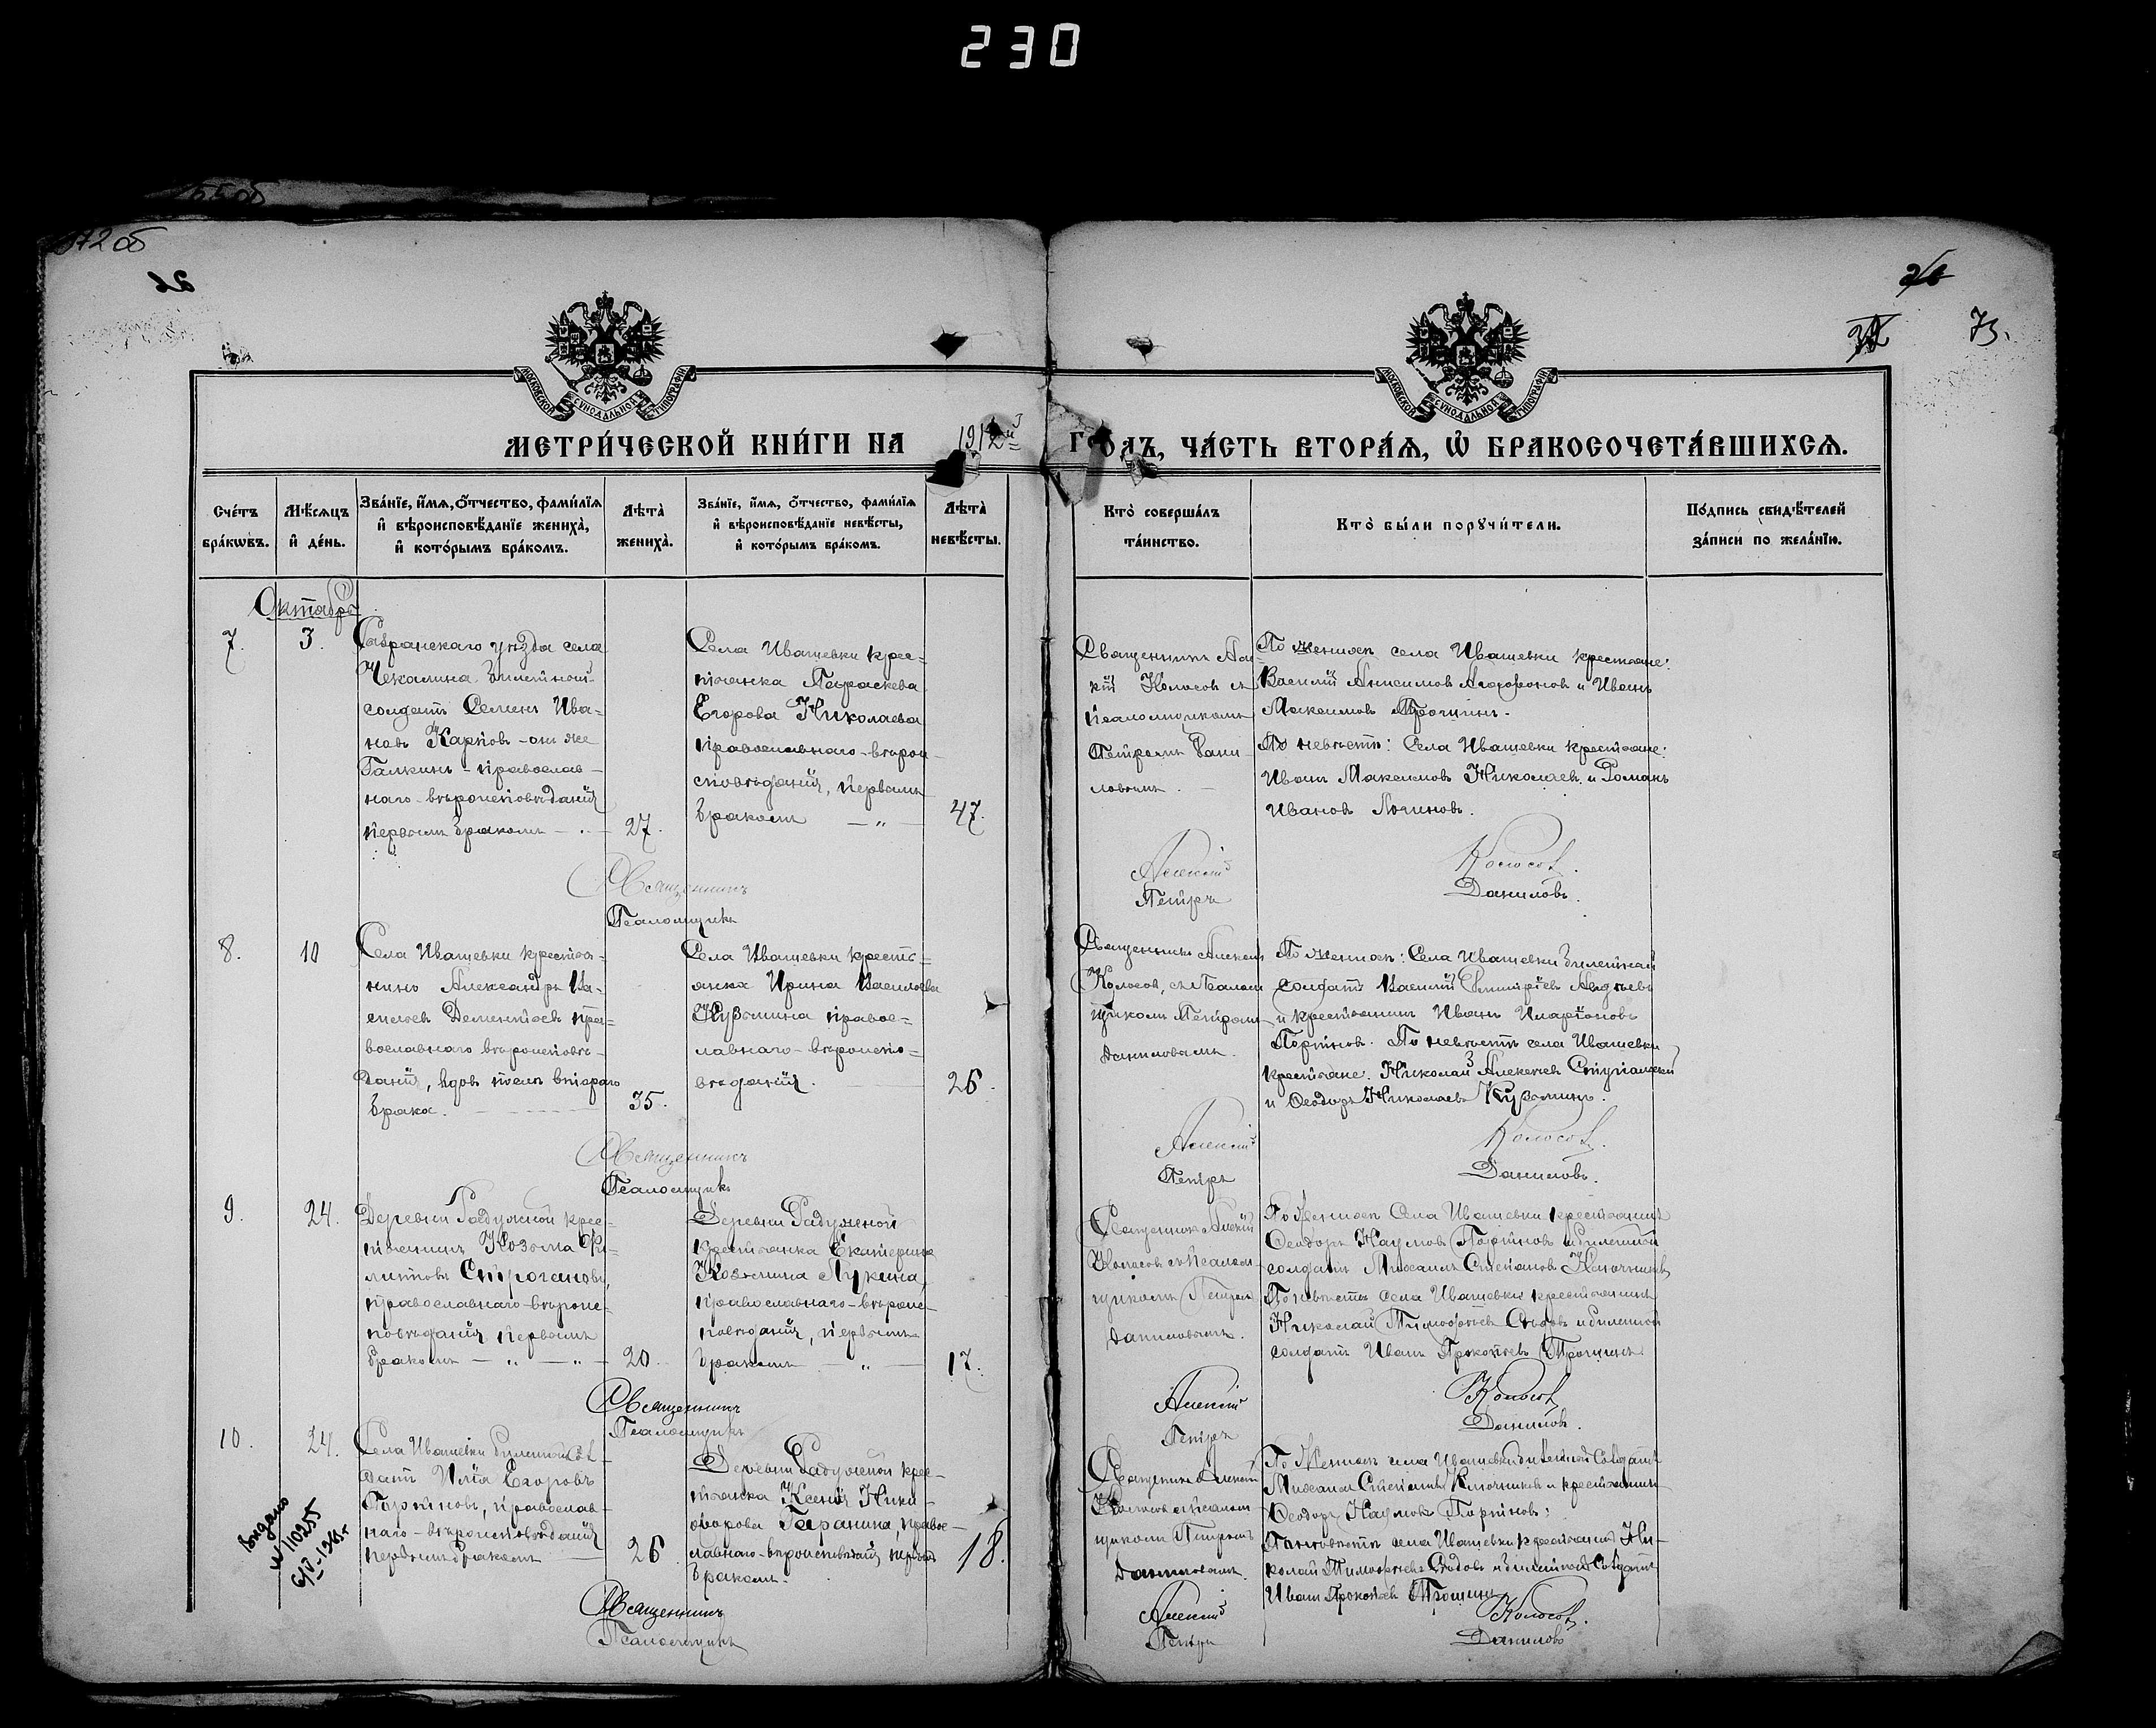 230
72 об
26
26
32
73.
МОСКОВСКОЙ СѴНОДАЛЬНОЙ ТИПОГРАФІИ
МОСКОВСКОЙ СѴНОДАЛЬНОЙ ТИПОГРАФІИ
МЕТРИ́ЧЕСКОЙ КНИ́ГИ НА 1912й ГОДЪ, ЧА́СТЬ ВТОРА́Ѧ, Ѡ҆ БРАКОСОЧЕТА́ВШИХСѦ.
Сче́тъ бра́кѡвъ.
Мѣ́сѧцъ и҆ де́нь.
Зва́нїе, и҆́мѧ, ѻ҆́тчество, фами́лїѧ
и҆ вѣроисповѣ́данїе жениха̀,
и҆ кото́рымъ бра́комъ.
Лѣта̀ жениха̀.
Зва́нїе, и҆́мѧ, ѻ҆́тчество, фами́лїѧ
и҆ вѣроисповѣ́данїе невѣ́сты,
и҆ кото́рымъ бра́комъ.
Лѣта̀ невѣ́сты.
Кто̀ соверша́лъ та́инство.
Кто̀ бы́ли порꙋчи́тели.
По́дпись свидѣ́телей
за́писи по жела́нїю.
Октябрь
7.
3.
Сызранскаго уѣзда села
Чекалина билетной
солдатъ Семенъ Ива=
новъ Карповъ - онъ же
Галкинъ - православ-
наго - вѣроисповѣданія
первымъ бракомъ
27.
Села Ивашевки крес=
тьянка Параскева
Егорова Николаева
православнаго - вѣрои-
сповѣданія, первымъ
бракомъ — " —
47.
Священникъ Але-
ксій Колосов съ
псаломщикомъ
Петромъ Дани-
ловымъ.
По женихѣ села Ивашевки крестьяне:
Василій Анисимовъ Агафоновъ и Иванъ
Максимовъ Трошинъ.
По невѣстѣ: Села Ивашевки крестьяне:
Иванъ Максимовъ Николаевъ и Романъ
Ивановъ Логиновъ.
Священникъ Алексій Колосовъ.
Псаломщикъ Петръ Даниловъ.
8.
10
Села Ивашевки крестья-
нинъ Александръ Ва-
сильевъ Дементьевъ пра-
вославнаго вѣроисповѣ-
данія, вдовъ послѣ втораго
брака.
35.
Села Ивашевки кресть=
янка Ирина Васильева
Кузьмина правос=
лавнаго - вѣроиспо=
вѣданія.
26.
Священникъ Алексій
Колосов, съ Псалом
щикомъ Петромъ
Даниловымъ.
По женихѣ: Села Ивашевки билетной
солдатъ Василій Димитріевъ Авдѣевъ
и крестьянинъ Иванъ Иларіоновъ
Портновъ. По невѣстѣ села Ивашевки
крестьяне: Николай Алексѣев
и Ѳеодоръ Николаевъ Кузьминъ.
Священникъ Алексій Колосовъ.
Псаломщикъ Петръ Даниловъ.
9.
24.
Деревни Радужной крес-
тьянинъ Козьма Фи-
липповъ Строгановъ,
православнаго - вѣроис-
повѣданія первымъ
бракомъ — " — " —
20.
Деревни Радужной
крестьянка Екатерина
Козьмина Лукина,
православнаго - вѣроис-
повѣданія, первымъ
бракомъ " —
17.
Священникъ Алексій
Колосов съ псалом-
щикомъ Петромъ
Даниловымъ.
По женихѣ Села Ивашевки крестьянинъ
Ѳеодоръ Наумовъ Портновъ и билетной
солдатъ Михаилъ Степановъ Ключниковъ
По невѣстѣ села Ивашевки крестьянинъ
Николай Тимоѳеевъ Сѣдовъ и билетной
солдатъ Иванъ Прокопьевъ Трошинъ
Священникъ Алексій Колосовъ
Псаломщикъ Петръ Даниловъ.
10.
24.
Села Ивашевки билетной сол-
датъ Илія Егоровъ
Портновъ, православ-
наго - вѣроисповѣданія
первымъ бракомъ
26
Деревни Радужной крес-
тьянка Ксенія Ники-
форова Гаранина, правос-
лавнаго - вѣроисповѣданія первымъ
бракомъ.
18.
Священникъ Алексій
Колосов съ псалом
щикомъ Петромъ
Даниловымъ.
По Женихѣ села Ивашевки билетной солдатъ
Михаилъ Степановъ Ключниковъ и крестьянинъ
Ѳеодоръ Наумовъ Портновъ:
По невѣстѣ села Ивашевки крестьянинъ Ни-
колай Тимоѳеевъ Сѣдовъ и билетной солдатъ
Иванъ Прокопьев Трошинъ
Священникъ Алексій Колосовъ.
Псаломщикъ Петръ Даниловъ
Выдано
№ 110255
6/IV-1965 г